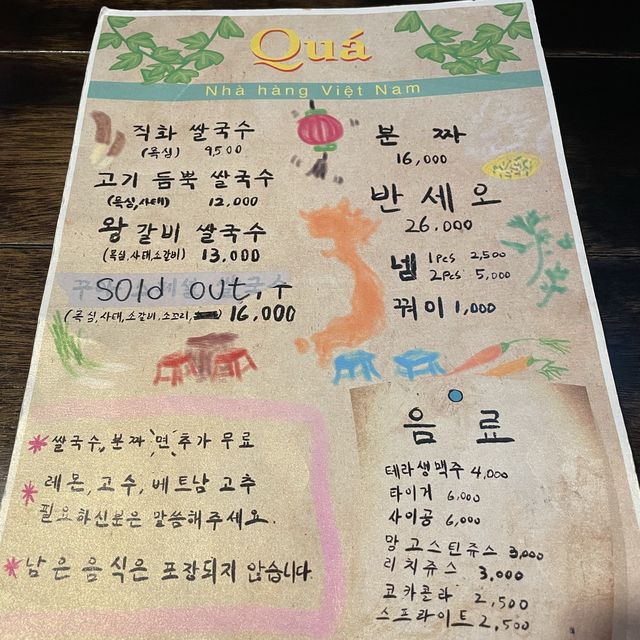 Quá
Nhà hàng Việt Nam
직화 쌀국수
(목심) 9,500
고기 듬뿍 쌀국수
(목심, 사태) 12,000
왕갈비 쌀국수
(목심, 사태, 소갈비) 13,000
Sold out,
(목심, 사태, 소갈비, 소꼬리, 16,000
분 짜
16,000
반 세 오
26,000
넴 1pcs 2,500
2pcs 5,000
꿔이 1,000
*쌀국수, 분짜 면 추가 무료
*레몬, 고수, 베트남 고추
필요하신분은 말씀해주세요.
*남은 음식은 포장되지 않습니다.
음 료
테라생맥주 4,000
타이거 6,000
사이공 6,000
망고스틴쥬스 3,000
리치쥬스 3,000
코카콜라 2,500
스프라이트 2,500